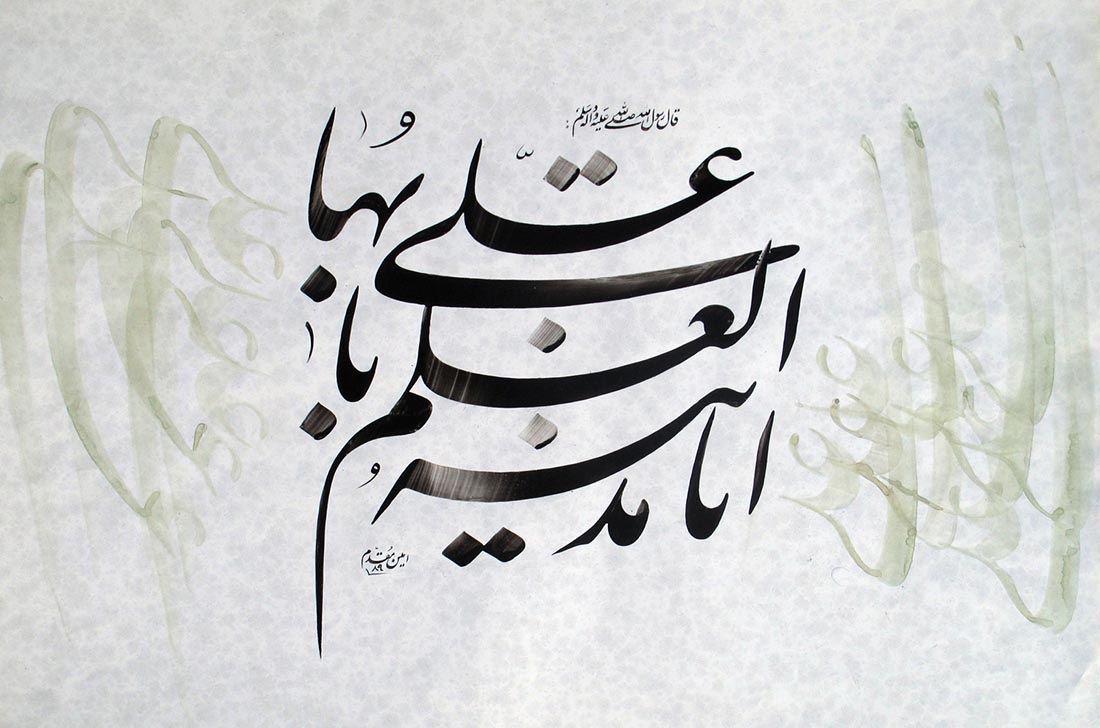 قال رسول الله صلی الله علیه و آله وسلم :
انا مدینة العلم و علیّ بابها
امین مقدم
۸۹